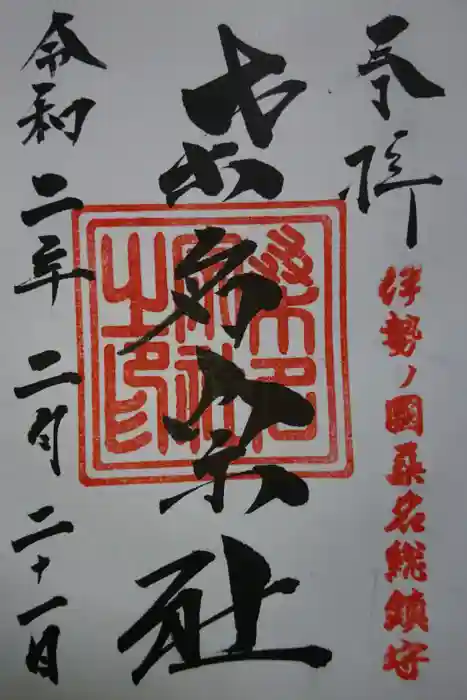 奉拝
伊勢ノ國桑名総鎮守
桑名宗社
桑名宗社之印
令和二年二月二十一日